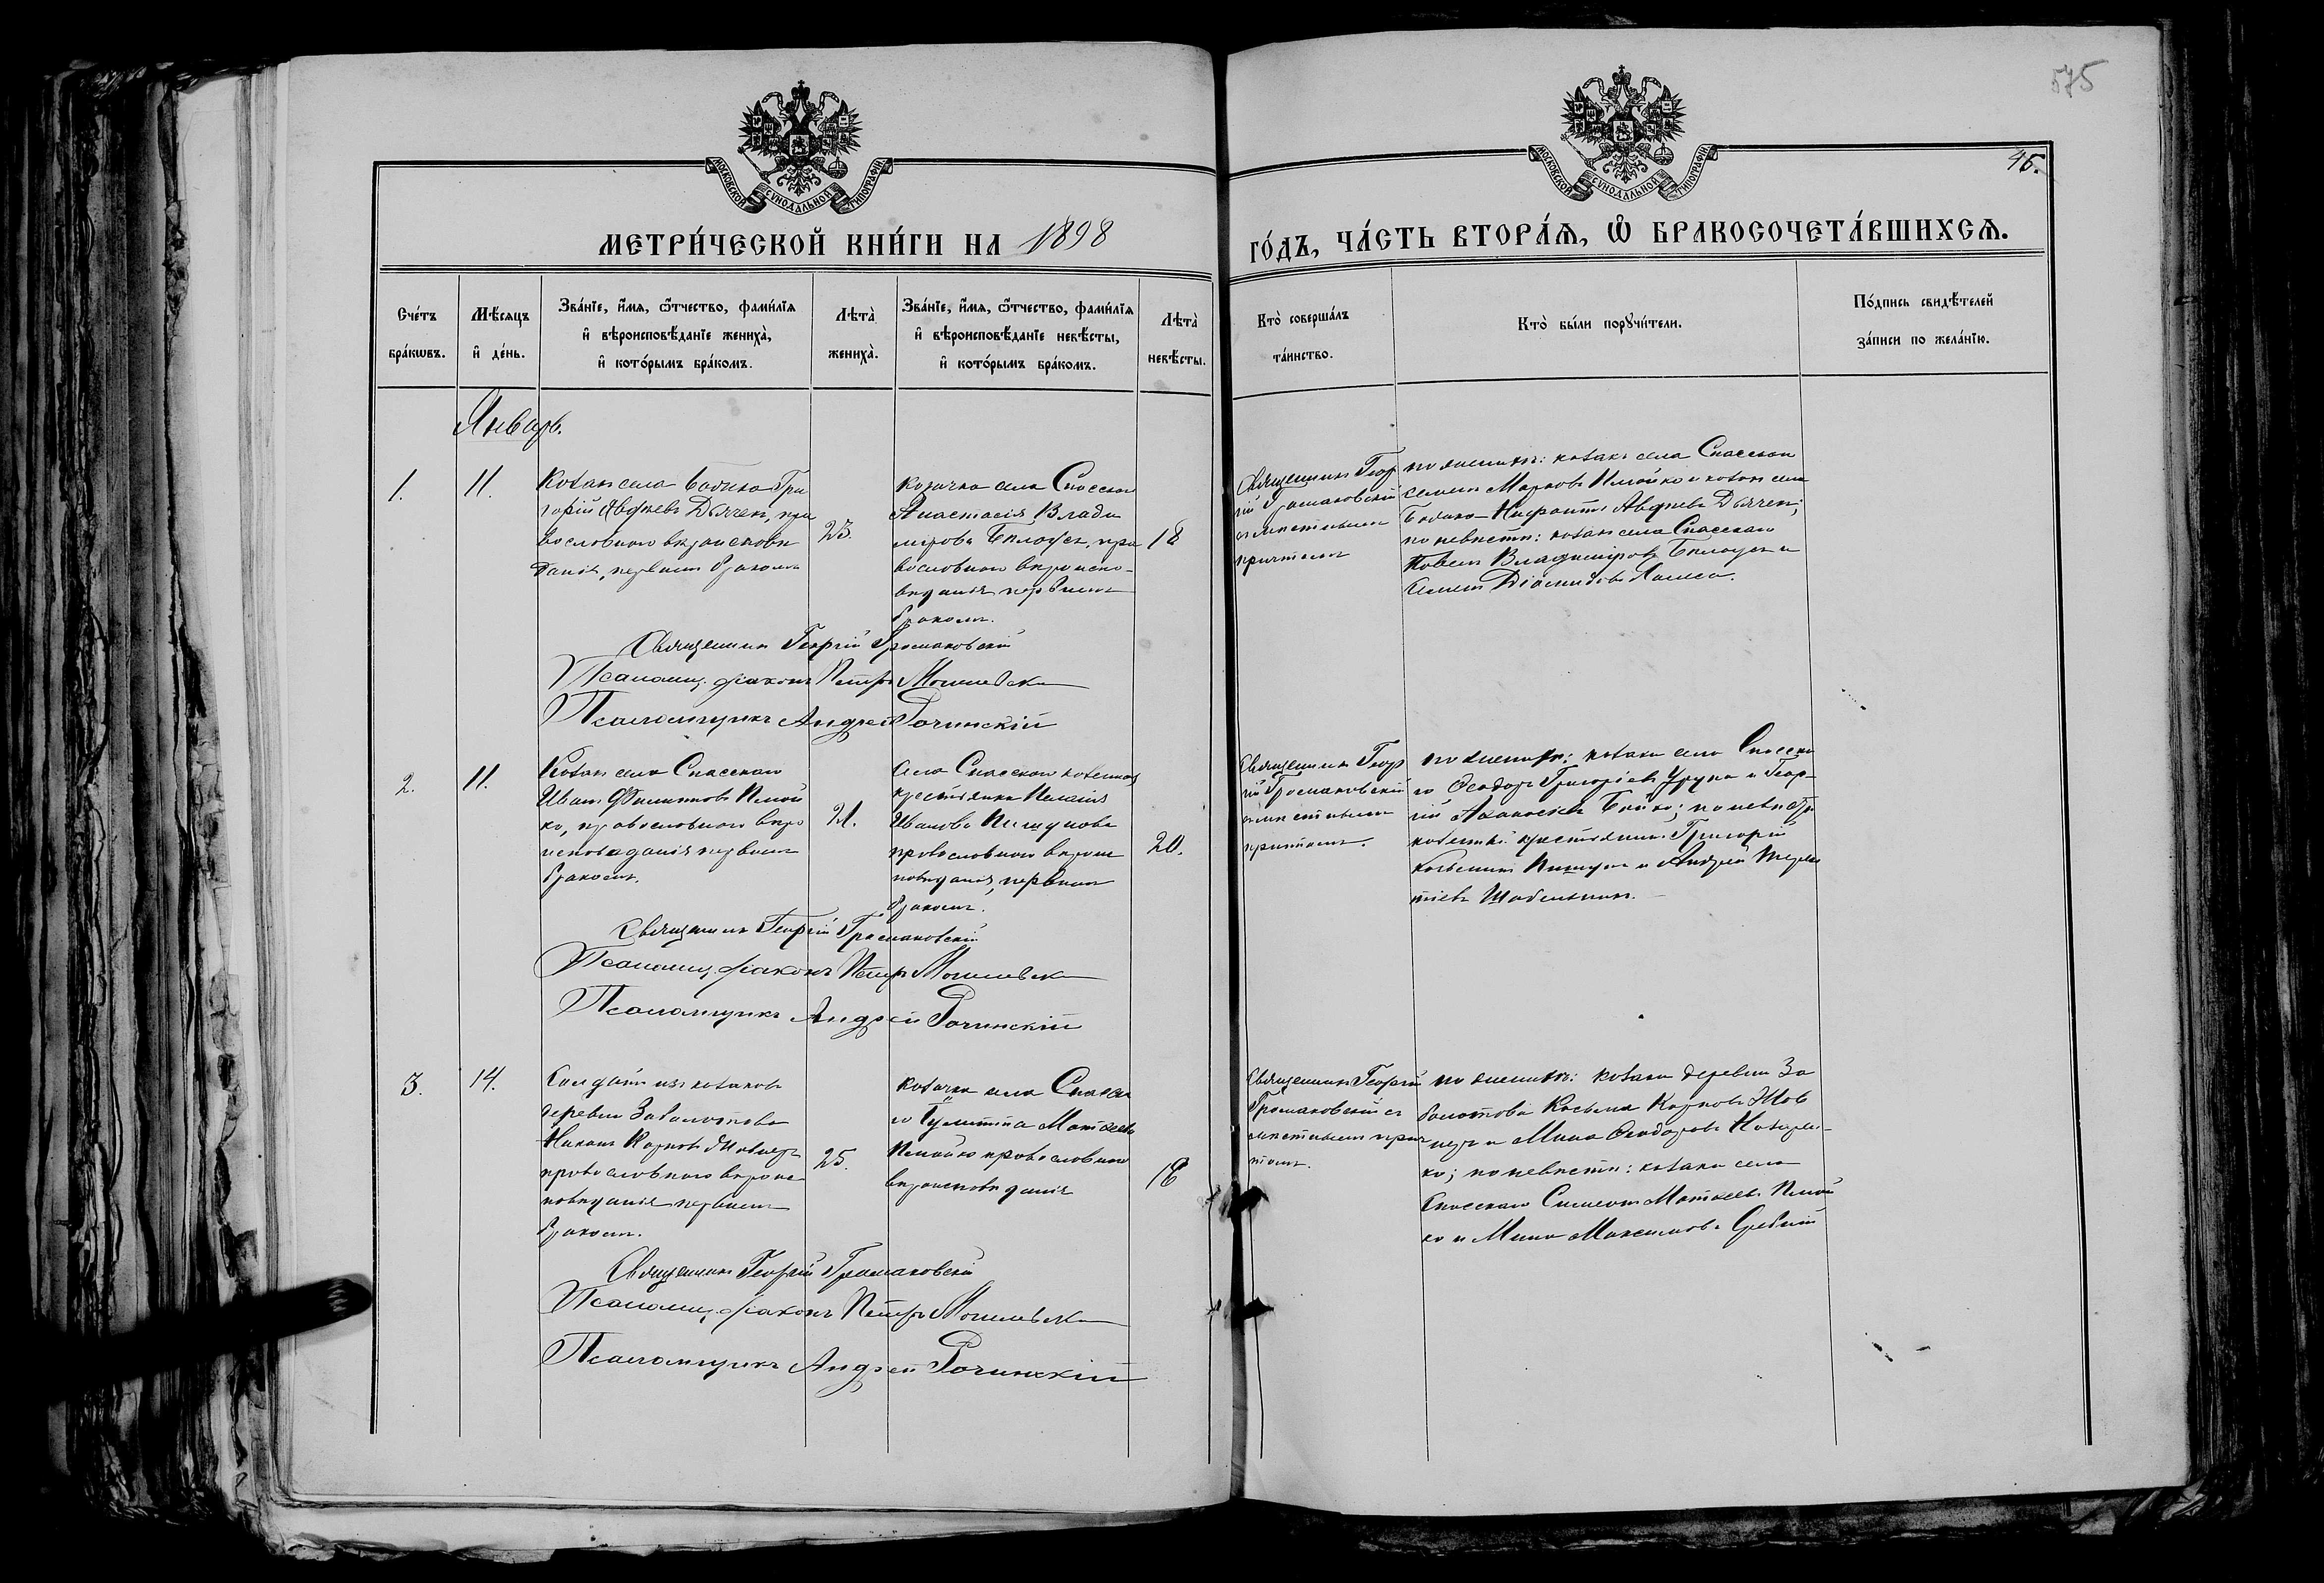 575
46.
МОСКОВСКОЙ СѴНОДАЛЬНОЙ ТИПОГРАФІИ
МОСКОВСКОЙ СѴНОДАЛЬНОЙ ТИПОГРАФІИ
МЕТРИ́ЧЕСКОЙ КНИ́ГИ НА 1898
ГО́ДЪ, ЧА́СТЬ ВТОРА́Ѧ, Ѽ БРАКОСОЧЕТА́ВШИХСѦ.
Сче́тъ бра́кѡвъ.
Мѣ́сяцъ и҆ де́нь.
Зва́нїе, и҆́мѧ, ѻ҆́тчество, фами́лїѧ
и҆ вѣроисповѣ́данїе жениха̀,
и҆ кото́рымъ бра́комъ.
Лѣта̀ жениха̀.
Зва́нїе, и҆́мѧ, ѻ҆́тчество, фами́лїѧ
и҆ вѣроисповѣ́данїе невѣ́сты,
и҆ кото́рымъ бра́комъ.
Лѣта̀ невѣ́сты.
Кто̀ соверша́лъ та́инство.
Кто̀ бы́ли порꙋчи́тели.
По́дпись свидѣ́телей
за́писи по жела́нїю.
Январь.
1.
11.
Козакъ села Бобика Гри
горій Авдіевъ Дьячекъ, пра
вославного вѣроисповѣ
данія, первымъ бракомъ
23.
Козачка села Спасскаго
Анастасія Влади
мірова Білоусъ, пра
вославного вѣроиспо-
вѣданія первымъ
бракомъ.
18
Священникъ Геор
гій Громаковскій
съ мѣстнымъ
причтомъ
по женихѣ: козакъ села Спасскаго
Марковъ и козакъ села
Авдіевъ Дьячекъ;
по невѣстѣ: козакъ села Спасскаго
Павелъ Владиміровъ Білоусъ и
Діомидовъ
Священникъ Георгій Громаковскій
Псаломщ. діаконъ Петръ
Псаломщикъ Андрей Рочинскій
2.
11.
Козакъ села Спасскаго
Иванъ Филиповъ
ко, православного вѣро
исповѣданія первымъ
бракомъ.
21.
Села Спасскаго козенная
крестьянка Пелагія
Иванова
православного вѣроис
повѣданія, первымъ
бракомъ.
20.
Священникъ Геор
гій Громаковскій
съ мѣстнымъ
причтомъ.
по женихѣ: козаки села Спасска
го Ѳеодоръ Григоріевъ и Геор-
гій Бойко; по невѣстѣ:
крестьяне: Григорій
и Андрей
Священникъ Георгій Громаковскій
Псаломщ. діаконъ Петръ
Псаломщикъ Андрей Рочинскій
3.
14.
Солдатъ изъ козаковъ
деревни Заболотова
Карповъ Жовнеръ
православного вѣроис
повѣданія первымъ
бракомъ.
25.
Козачка села Спасска
го Матѳеева
православного
вѣроисповѣданія
18
Священникъ Георгій
Громаковскій съ
мѣстнымъ прич
томъ.
по женихѣ: козаки деревни За
болотова Косьма Карповъ Жов
неръ и Мина Ѳеодоровъ
ко; по невѣстѣ: козаки села
Спасскаго Симеонъ Матѳеевъ
ко и Мина Максимовъ
Священникъ Георгій Громаковскій
Псаломщ. діаконъ Петръ
Псаломщикъ Андрей Рочинскій